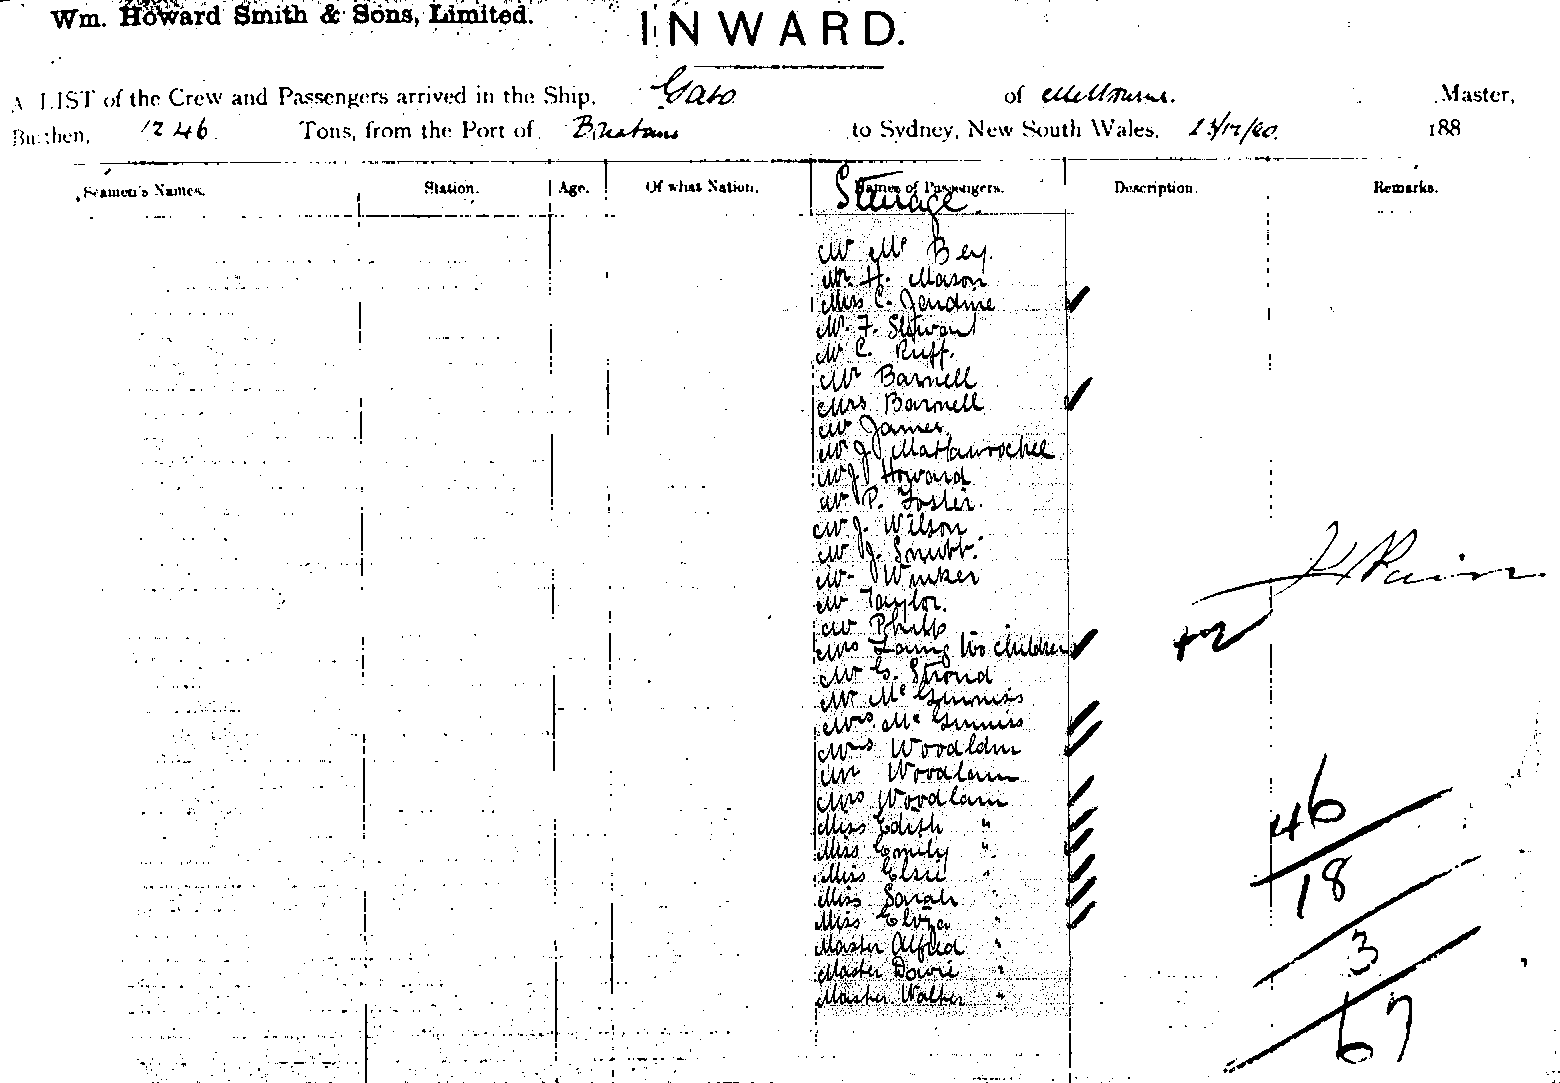 Wm. Howard Smith & Sons, Limited.
INWARD.
A LIST of the Crew and Passengers arrived in the Ship, Gabo of Melbourne. Master,
Burthen, 1246 Tons, from the Port of Brisbane to Sydney, New South Wales, 188
Seamen's Names. Station. Age. Of what Nation. Names of Passengers. Description. Remarks.
Steerage
Mr Mc Bey.
Mr. H. Mason
Miss C. Jardine
Mr. F. Stewart
Mr C. Ruff.
Mr Barnell
Mrs Barnell
Mr James
Mr J.
Mr J Howard
Mr P. Foster.
Mr J. Wilson
Mr J.
Mr Winker
Mr Taylor.
Mr Philp
Mrs Laing two children
Mr G. Strond
Mr Mc Ginniss
Mrs Mc Ginniss
Mrs
Mr Woodlam
Mrs Woodlam
Miss Edith "
Miss Emily "
Miss Elsie "
Miss Sarah
Miss Eliza "
Master Alfred "
Master "
Master Walter "
46
18
3
67